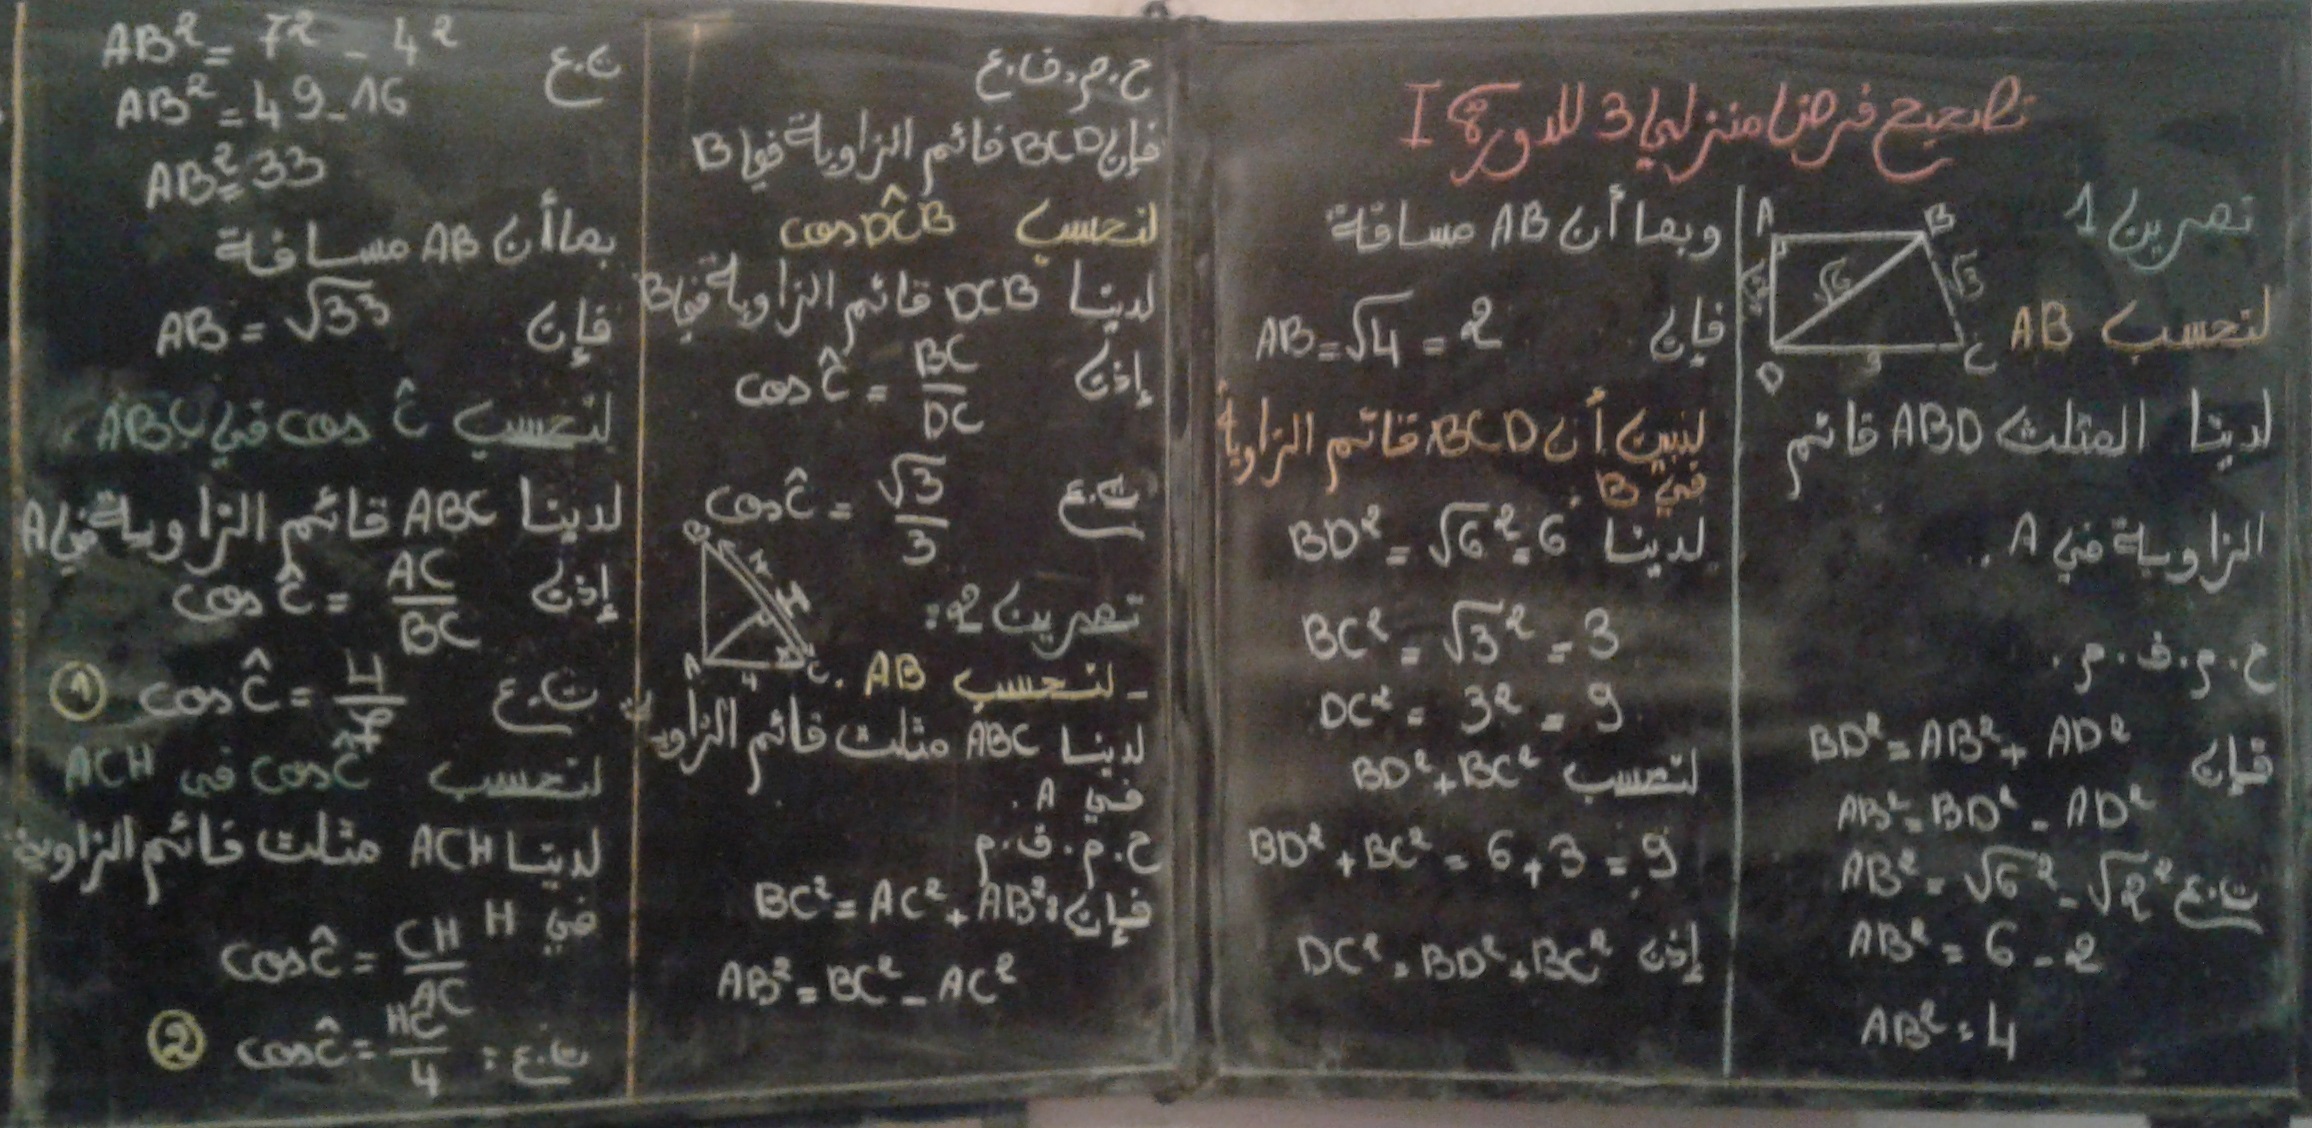 تصحيح فرض منزلي 3 للدورة I
تمرين 1
A
B
√2
√6
√3
D
3
C
لنحسب AB
لدينا المثلث ABD قائم
الزاوية في A.
ح.م.ف.م.
فإن BD² = AB² + AD²
AB² = BD² - AD²
ت.ع AB² = √6² - √2²
AB² = 6 - 2
AB² = 4
وبما أن AB مسافة
فإن AB = √4 = 2
لنبين أن BCD قائم الزاوية
في B.
لدينا BD² = √6² = 6
BC² = √3² = 3
DC² = 3² = 9
لنحسب BD² + BC²
BD² + BC² = 6 + 3 = 9
إذن DC² = BD² + BC²
ح.م.ف.ع
فإن BCD قائم الزاوية في B
لنحسب cos DĈB
لدينا DCB قائم الزاوية في B
إذن cos Ĉ = BC/DC
ت.ع cos Ĉ = √3/3
تمرين 2:
B
7
H
A
4
C
- لنحسب AB.
لدينا ABC مثلث قائم الزاوية
في A.
ح.م.ف.م
فإن: BC² = AC² + AB²
AB² = BC² - AC²
ت.ع AB² = 7² - 4²
AB² = 49 - 16
AB² = 33
بما أن AB مسافة
فإن AB = √33
لنحسب cos Ĉ في ABC
لدينا ABC قائم الزاوية في A
إذن cos Ĉ = AC/BC
ت.ع cos Ĉ = 4/7 ①
لنحسب cos Ĉ في ACH
لدينا ACH مثلث قائم الزاوية
في H
cos Ĉ = CH/AC
ت.ع: cos Ĉ = HC/4 ②